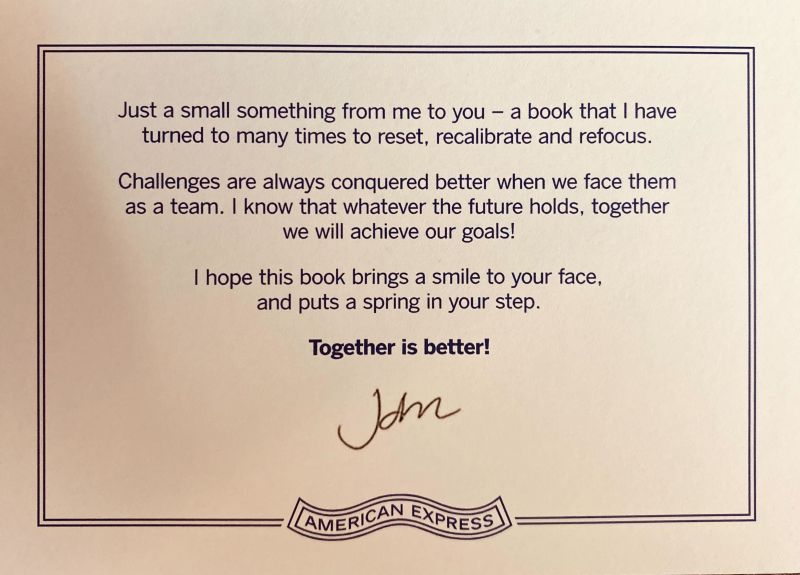 Just a small something from me to you – a book that I have
turned to many times to reset, recalibrate and refocus.
Challenges are always conquered better when we face them
as a team. I know that whatever the future holds, together
we will achieve our goals!
I hope this book brings a smile to your face,
and puts a spring in your step.
Together is better!
John
AMERICAN EXPRESS